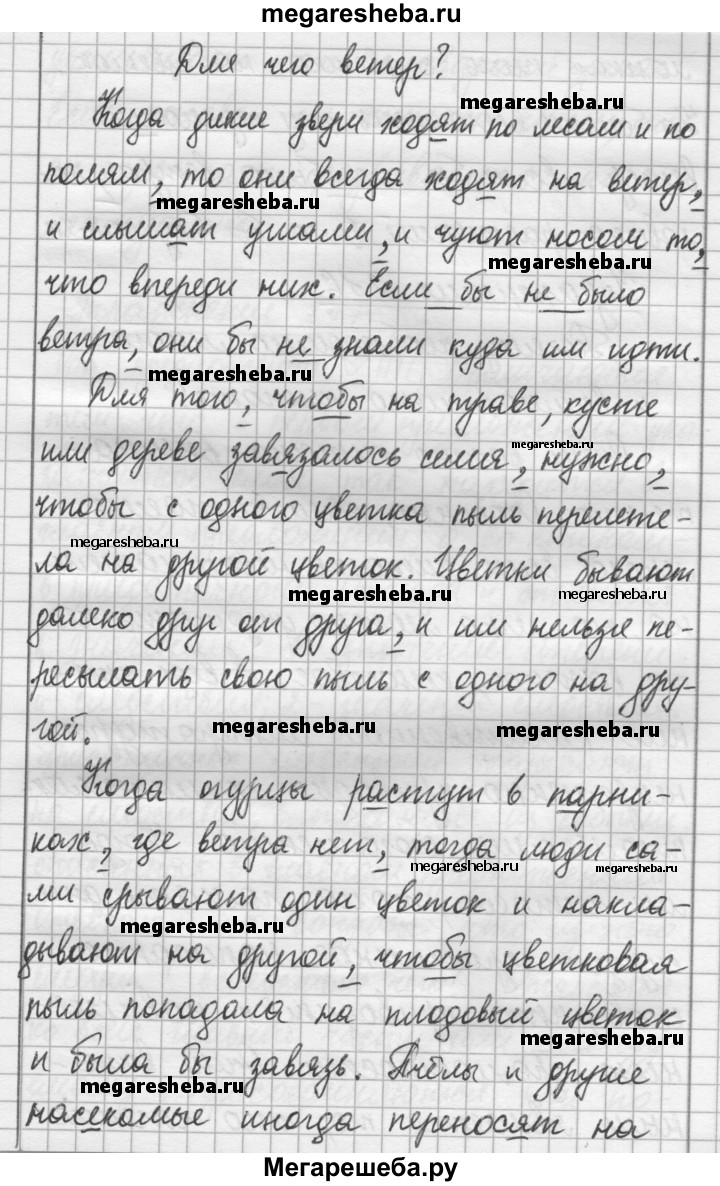 megaresheba.ru
Для чего ветер?
megaresheba.ru
Когда дикие звери ходят по лесам и по
полям, то они всегда ходят на ветер,
megaresheba.ru
и слышат ушами, и чуют носом то,
megaresheba.ru
что впереди них. Если бы не было
ветра, они бы не знали куда им идти.
megaresheba.ru
Для того, чтобы на траве, кусте
megaresheba.ru
или дереве завязалось семя, нужно,
чтобы с одного цветка пыль перелете-
megaresheba.ru
ла на другой цветок. Цветки бывают
megaresheba.ru megaresheba.ru
далеко друг от друга, и им нельзя пе-
ресылать свою пыль с одного на дру-
гой.
megaresheba.ru megaresheba.ru
Когда огурцы растут в парни-
ках, где ветра нет, тогда люди са-
megaresheba.ru megaresheba.ru
ми срывают один цветок и накла-
megaresheba.ru
дывают на другой, чтобы цветковая
пыль попадала на плодовый цветок
megaresheba.ru
и была бы завязь. Пчёлы и другие
megaresheba.ru
насекомые иногда переносят на
Мегарешеба.ру